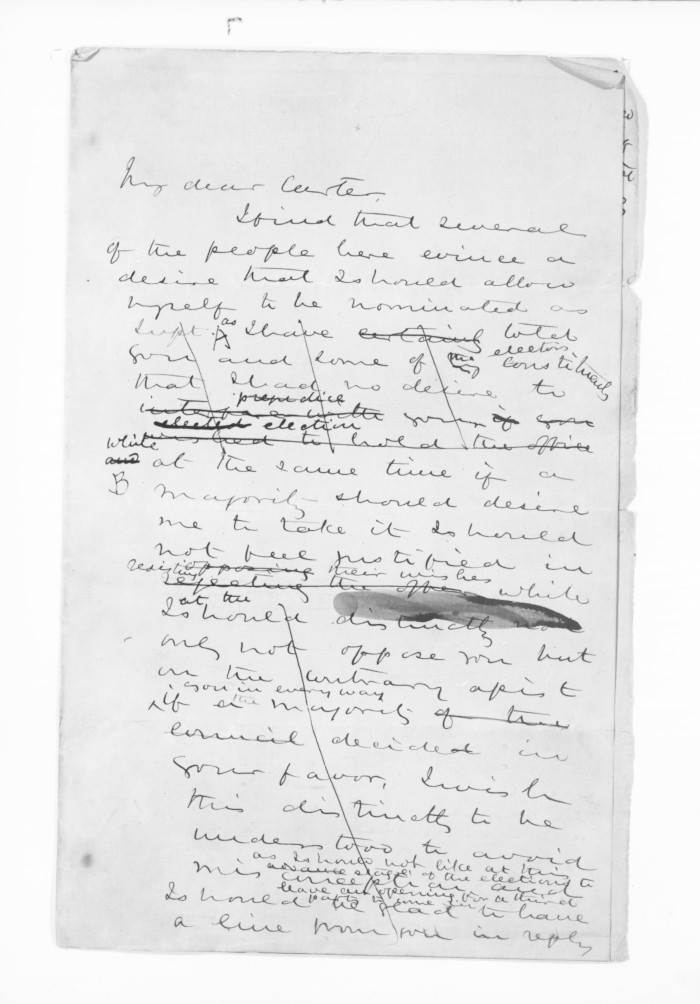 My dear Carter,
I find that several
of the people here evince a
desire that I should allow
myself to be nominated as
Supt. as I have certainly told
you and some of the electors constituents
that I had no desire to
prejudice
interfere with your if you
elected election
wished to hold the office
while
and at the same time if a
B majority should desire
me to take it I should
not feel justified in
resisting opposing their wishes
rejecting the offer while
at the
I should distinctly not
only not oppose you but
on the contrary assist
you in every way
if a the majority of the
council decided in
your favor, I wish
this distinctly to be
understood to avoid
as I should not like at this
advance stage of the election to
misconception and
leave an opening for a third
party to come in
I should be glad to have
a line from you in reply